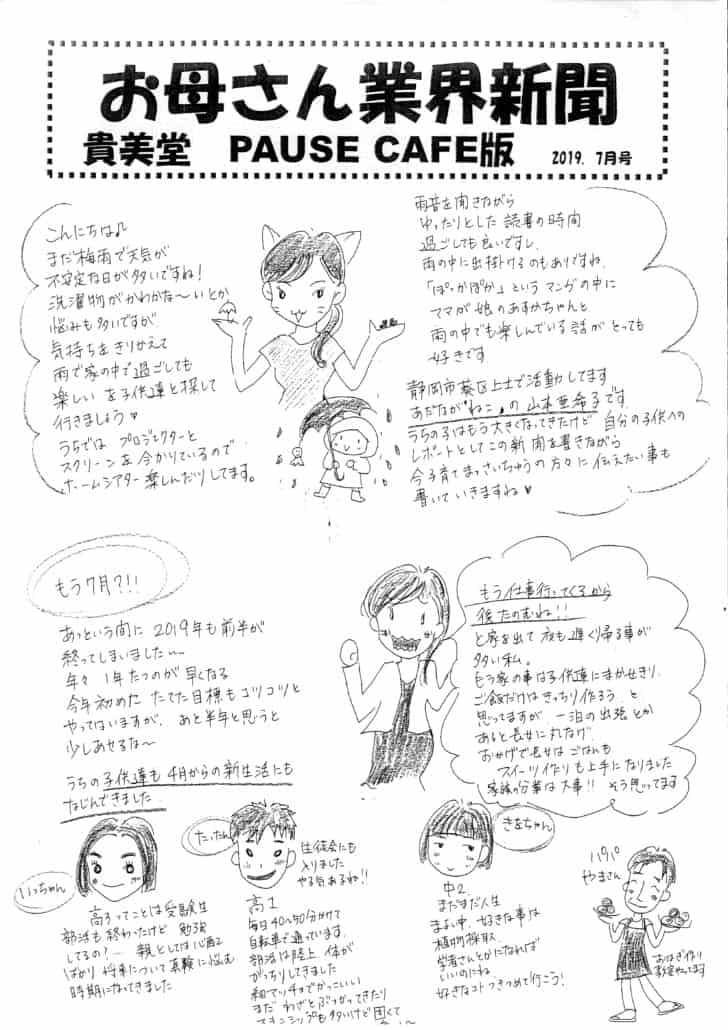 お母さん業界新聞
貴美堂 PAUSE CAFE版 2019. 7月号
こんにちは♪
まだ梅雨で天気が
不安定な日が多いですね!
洗濯物がかわかな〜いとか
悩みも多いですが
気持ちをきりかえて
雨で家の中で過ごしても
楽しいを子供達と探して
行きましょう♡
うちでは プロジェクターと
スクリーンを今かりているので
ホームシアター楽しんだりしてます。
雨音を聞きながら
ゆったりとした読書の時間
過ごしても良いですし、
雨の中に出掛けるのもありですね。
「ぽっかぽか」というマンガの中に
ママが娘のあすかちゃんと
雨の中でも楽しんでいる話がとっても
好きです
静岡市葵区上土で活動してます
あだなが"ねこ"の山本亜希子です
うちの子はもう大きくなってきたけど 自分の子供への
レポートとしてこの新聞を書きながら
今子育てまっさいちゅうの方々に伝えたい事も
書いていきますね♥
もう7月?!!
あっという間に2019年も前半が
終ってしまいました〜
年々 1年たつのが早くなる
今年初めに たてた目標もコツコツと
やってはいますが、あと半年と思うと
少しあせるな〜
うちの子供達も4月からの新生活にも
なじんできました
もう仕事行ってくるから
後たのむね!!
と家を出て 夜も遅く帰る事が
多い私。
もう家の事は子供達にまかせきり。
ご飯だけはきっちり作ろう と
思ってますが、一泊の出張とか
あると長女に丸なげ。
おかげで長女は ごはんも
スイーツ作りも上手になりました
家族の分業は大事!! そう思ってます
いっちゃん
高3ってことは受験生
部活も終わったけど 勉強
してるの?… 親としては心配
ばかり 将来について真験に悩む
時期になってきました
たったん
生徒会にも
入りました
やる気あるね!!
高1
毎日40〜50分かけて
自転車で通っています。
部活は陸上 体が
がっちりしてきました
細マッチョでかっこいい
まだ わざとぶつかってきたり
スキンシップも多いけど固くて
きあちゃん
中2
まだまだ人生
まよい中、好きな事は
植物採取、
学者さんとかになれば
いいのにね、
好きなコトつきつめて行こう!
パパ
やまさん
おはぎ作り